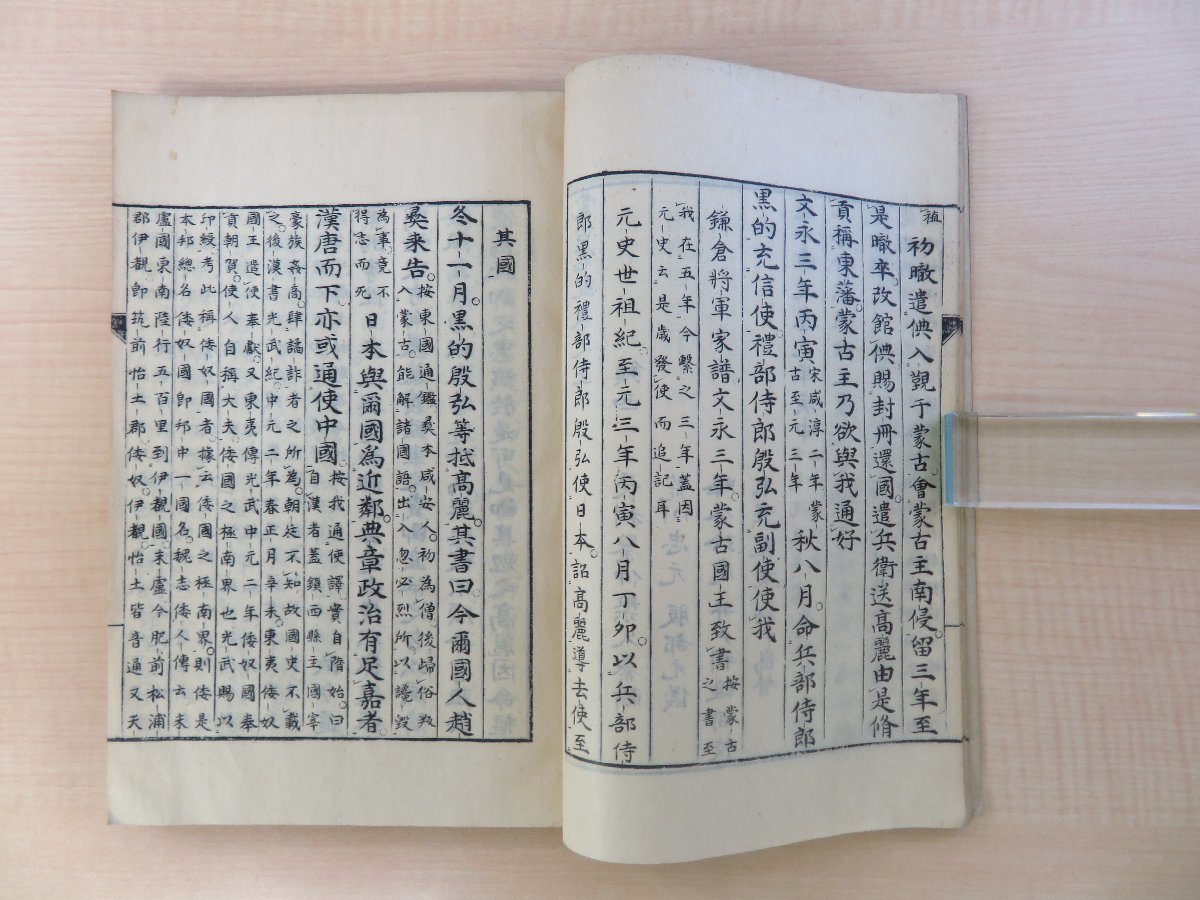 祖
初瞰遣倎入覲于蒙古。會蒙古主南侵。留三年至
是瞰卒。改館倎賜封冊還國。遣兵衛送高麗由是脩
貢稱東藩。蒙古主乃欲與我通好
文永三年丙寅宋咸淳二年蒙古至元三年秋八月。命兵部侍郎
黑的充信使。禮部侍郎殷弘充副使使我
鎌倉將軍家譜文永三年。蒙古國王致書按蒙古之書至
我在五年今繫之三年蓋因
元史云是歲發使而追記耳
元史世祖紀。至元三年丙寅八月丁卯。以兵部侍
郎黑的禮部侍郎殷弘使日本。詔高麗導去使至
其國
冬十一月。黑的殷弘等抵高麗。其書曰今爾國人趙
彝來告。按東國通鑑。彝本咸安人。初為僧後歸俗叛
入蒙古。能解諸國語。出入忽必烈所以讒毀
為事。竟不得志而死日本與爾國爲近鄰。典章政治有足嘉者。
漢唐而下。亦或通使中國。按我通使譯實自隋始。曰
自漢者蓋鎮西縣主國宰
豪族姦商。肆譎詐者之所為。朝廷不知故國史不載
之。後漢書光武紀。中元二年春正月辛未。東夷倭奴
國王遣使奉獻。又東夷傳光武中元二年倭奴國奉
貢朝賀。使人自稱大夫。倭國之極南界也光武賜以
印綬。考此稱倭奴國者據云倭國之極南界。則倭是
本邦總名倭奴國卽邦中一國名。魏志倭人傳云末
盧國東南陸行五百里到伊覩國末盧今肥前松浦
郡伊覩卽筑前怡土郡。倭奴。伊覩。怡土皆音通又天